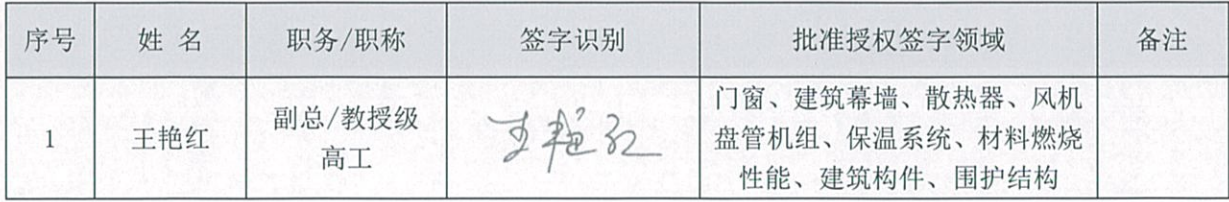 序号 姓 名 职务/职称 签字识别 批准授权签字领域 备注
1 王艳红 副总/教授级 王艳红 门窗、建筑幕墙、散热器、风机
高工 盘管机组、保温系统、材料燃烧
性能、建筑构件、围护结构